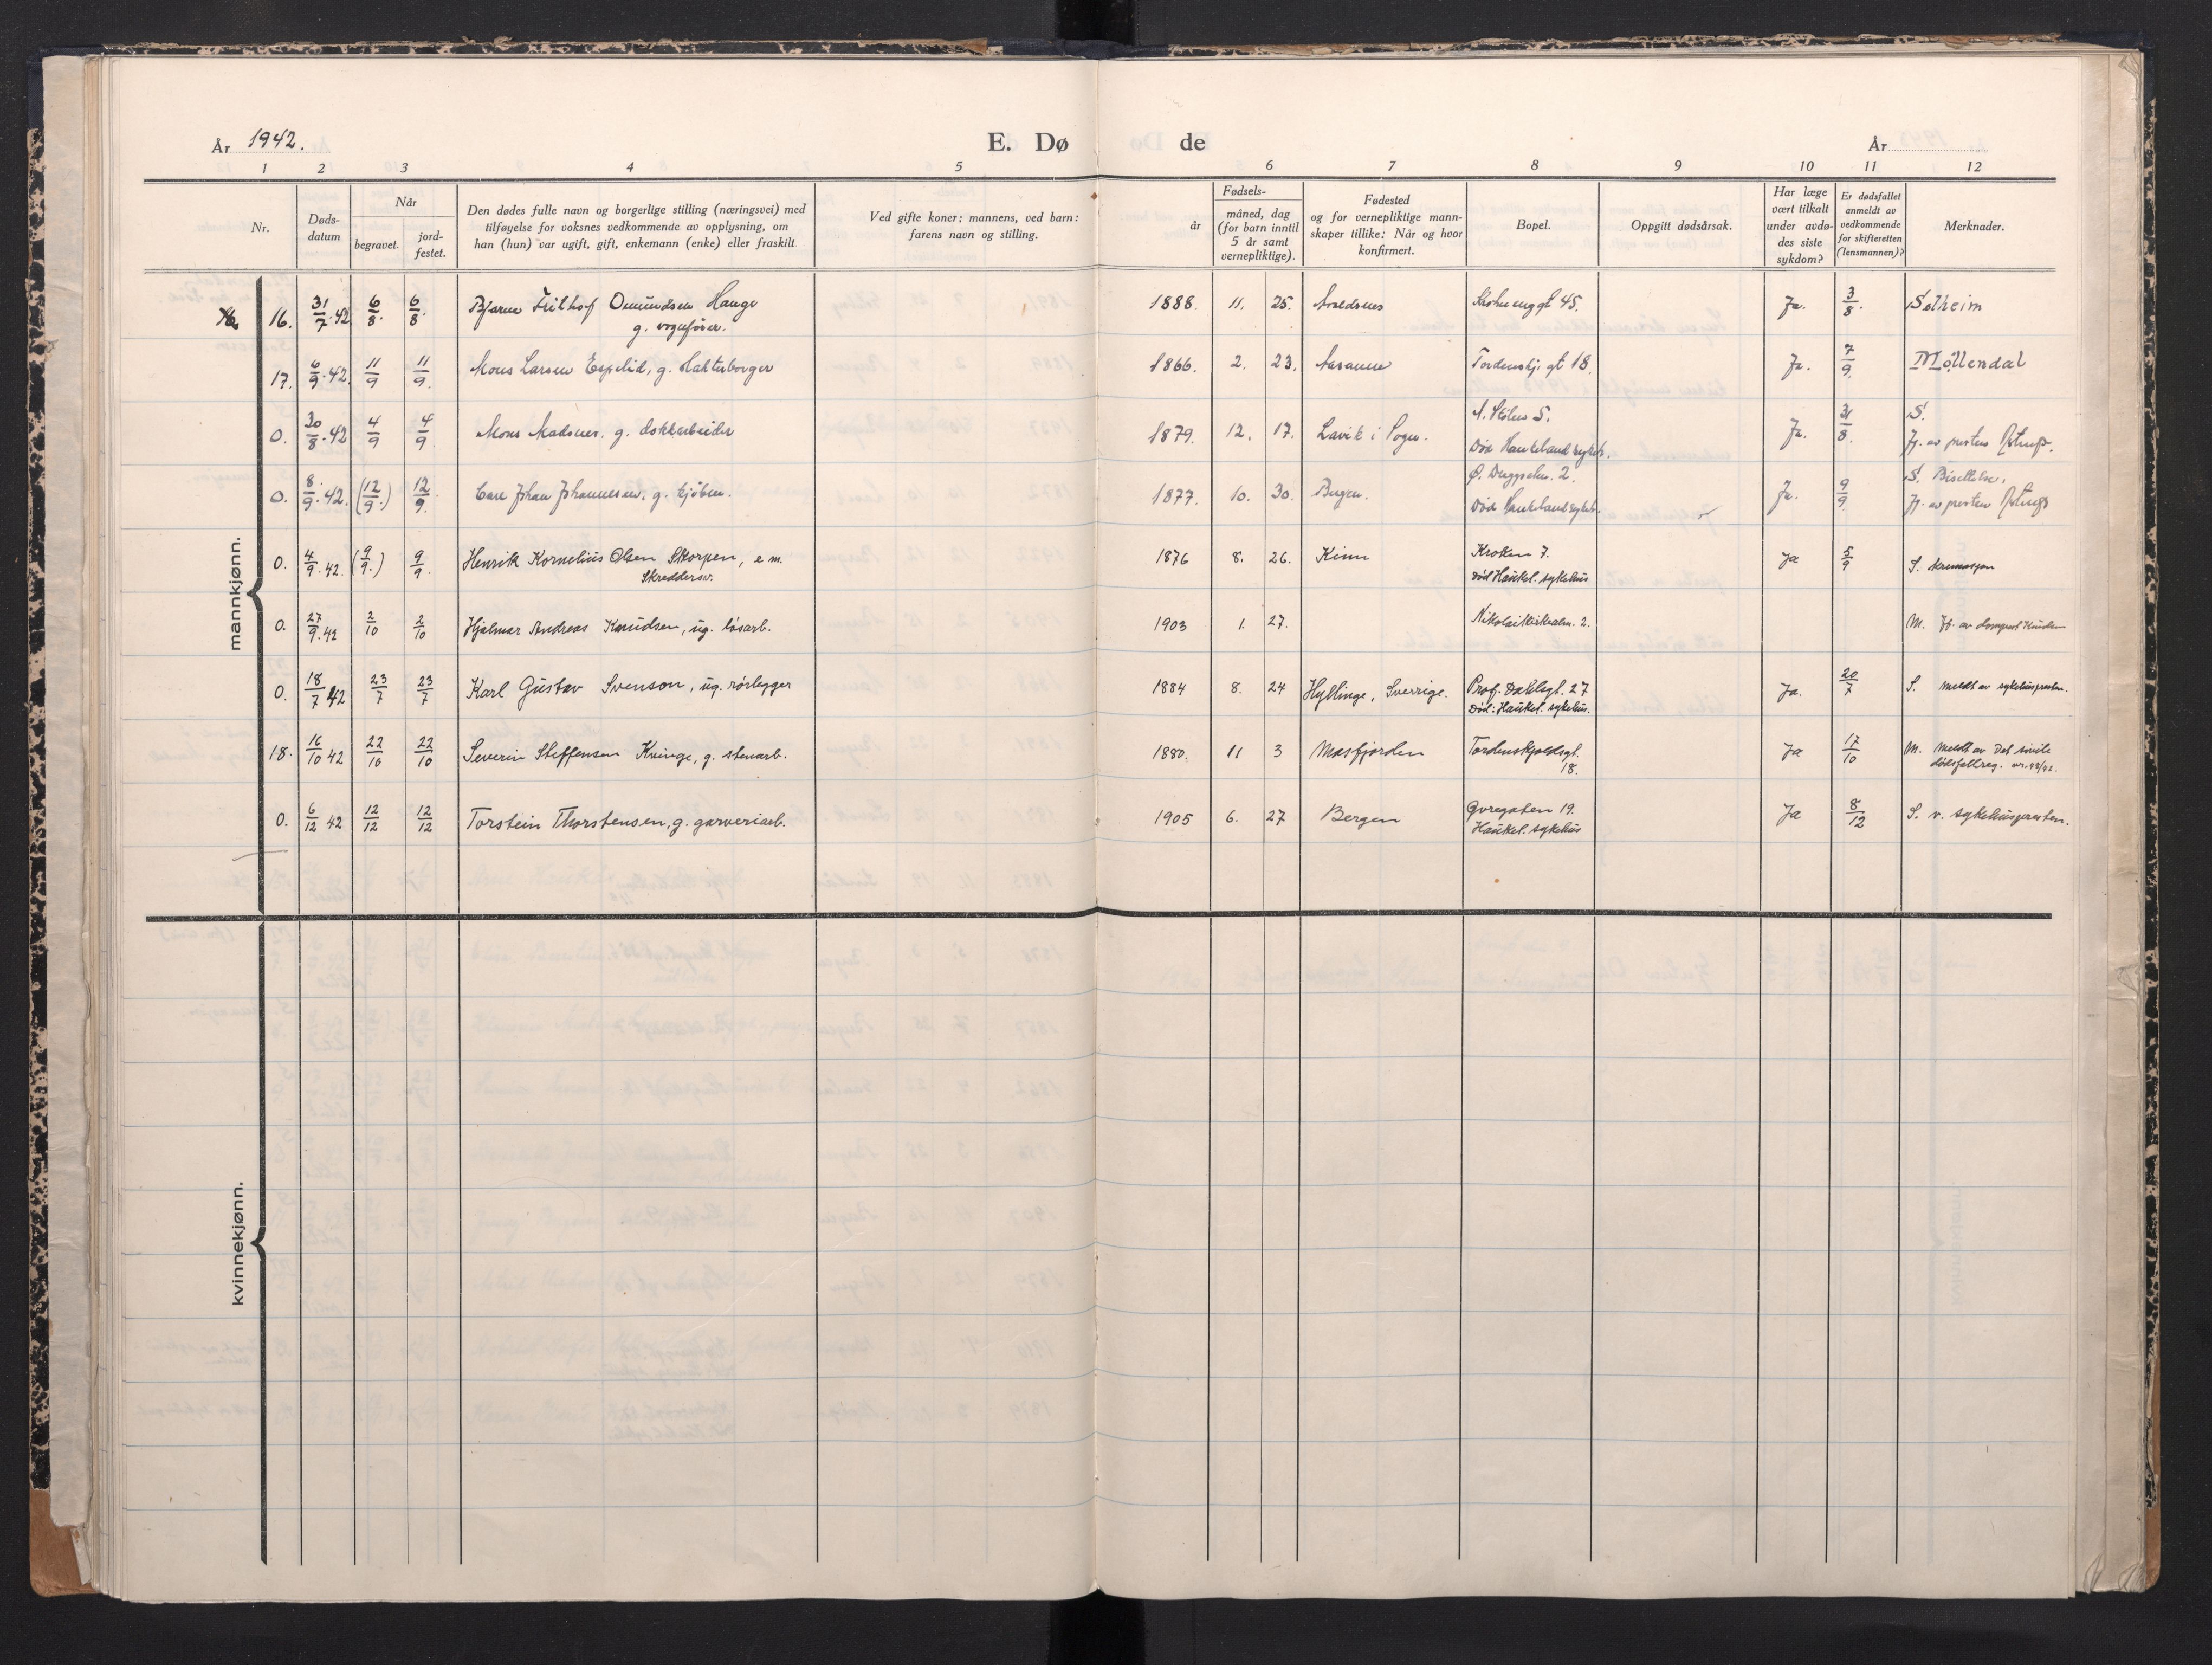 År 1942.
E. Dø de
År
1 2 3 4 5 6 7 8 9 10 11 12
Nr.
Døds-
datum
Når
begravet.
jord-
festet.
Den dødes fulle navn og borgerlige stilling (næringsvei) med
tilføyelse for voksnes vedkommende av opplysning, om
han (hun) var ugift, gift, enkemann (enke) eller fraskilt.
Ved gifte koner: mannens, ved barn:
farens navn og stilling.
Fødsels-
år
måned, dag
(for barn inntil
5 år samt
vernepliktige).
Fødested
og for vernepliktige mann-
skaper tillike: Når og hvor
konfirmert.
Bopel.
Oppgitt dødsårsak.
Har læge
vært tilkalt
under avdø-
des siste
sykdom?
Er dødsfallet
anmeldt av
vedkommende
for skifteretten
(lensmannen)?
Merknader.
mannkjønn.
16. 31/7.42 6/8. 6/8. Bjarne Frithof Omundsen Hauge 1888. 11. 25. Avaldsnes gt 45. Ja. 3/8 Solheim
g. vognfører.
17. 6/9.42. 11/9 11/9. Mons Larsen Espelid, g. 1866. 2. 23. Tordenskj. gt 18. Ja. 7/9. Møllendal
0. 30/8.42 4/9 4/9 Mons Madsnes. g. dokkarbeider 1879. 12. 17. Lavik i Sogn. Ja. 31/8. S.
Død Haukeland sykeh. Jf. av presten Astrup.
0. 8/9.42. (12/9.) 12/9. Carl Johan Johannessen, g. 1877. 10. 30. Bergen. Ø. Dreggsalm. 2. Ja. 9/9 S. Bisettelse.
Død Haukeland sykeh. Jf. av presten Astrup
0. 4/9.42. (9/9.) 9/9. Henrik Kornelius Olsen Skorpen, e.m. 1876 8. 26. Kinn Kroken 7. Ja 5/9 S. kremasjon
Skreddersv. Død Haukel. sykehus
0. 27/9.42 2/10 2/10 Hjalmar Andreas Knudsen, ug. løsarb. 1903 1. 27. Nikolaikirkealm. 2. M. Jf. av
0. 18/7 42 23/7 23/7 Karl Gustav Svenson, ug. rørlegger 1884 8. 24 Hyllinge, Sverrige. Prof. Dahlsgt. 27 Ja. 20/7 S. meldt av sykehuspresten.
Død: Haukel. sykehus.
18. 16/10 42 22/10 22/10 Severin Steffensen Kvinge, g. stenarb. 1880. 11 3 Masfjorden Tordenskjoldsgt. Ja 17/10 M. Meldt av Det sivile
18. dødsfallreg. nr. 48/42.
0. 6/12 42 12/12 12/12 Torstein Thorstensen, g. garveriarb. 1905 6. 27 Bergen Øvregaten 19. Ja 8/12 S. v. sykehuspresten.
Haukel. sykehus
kvinnekjønn.